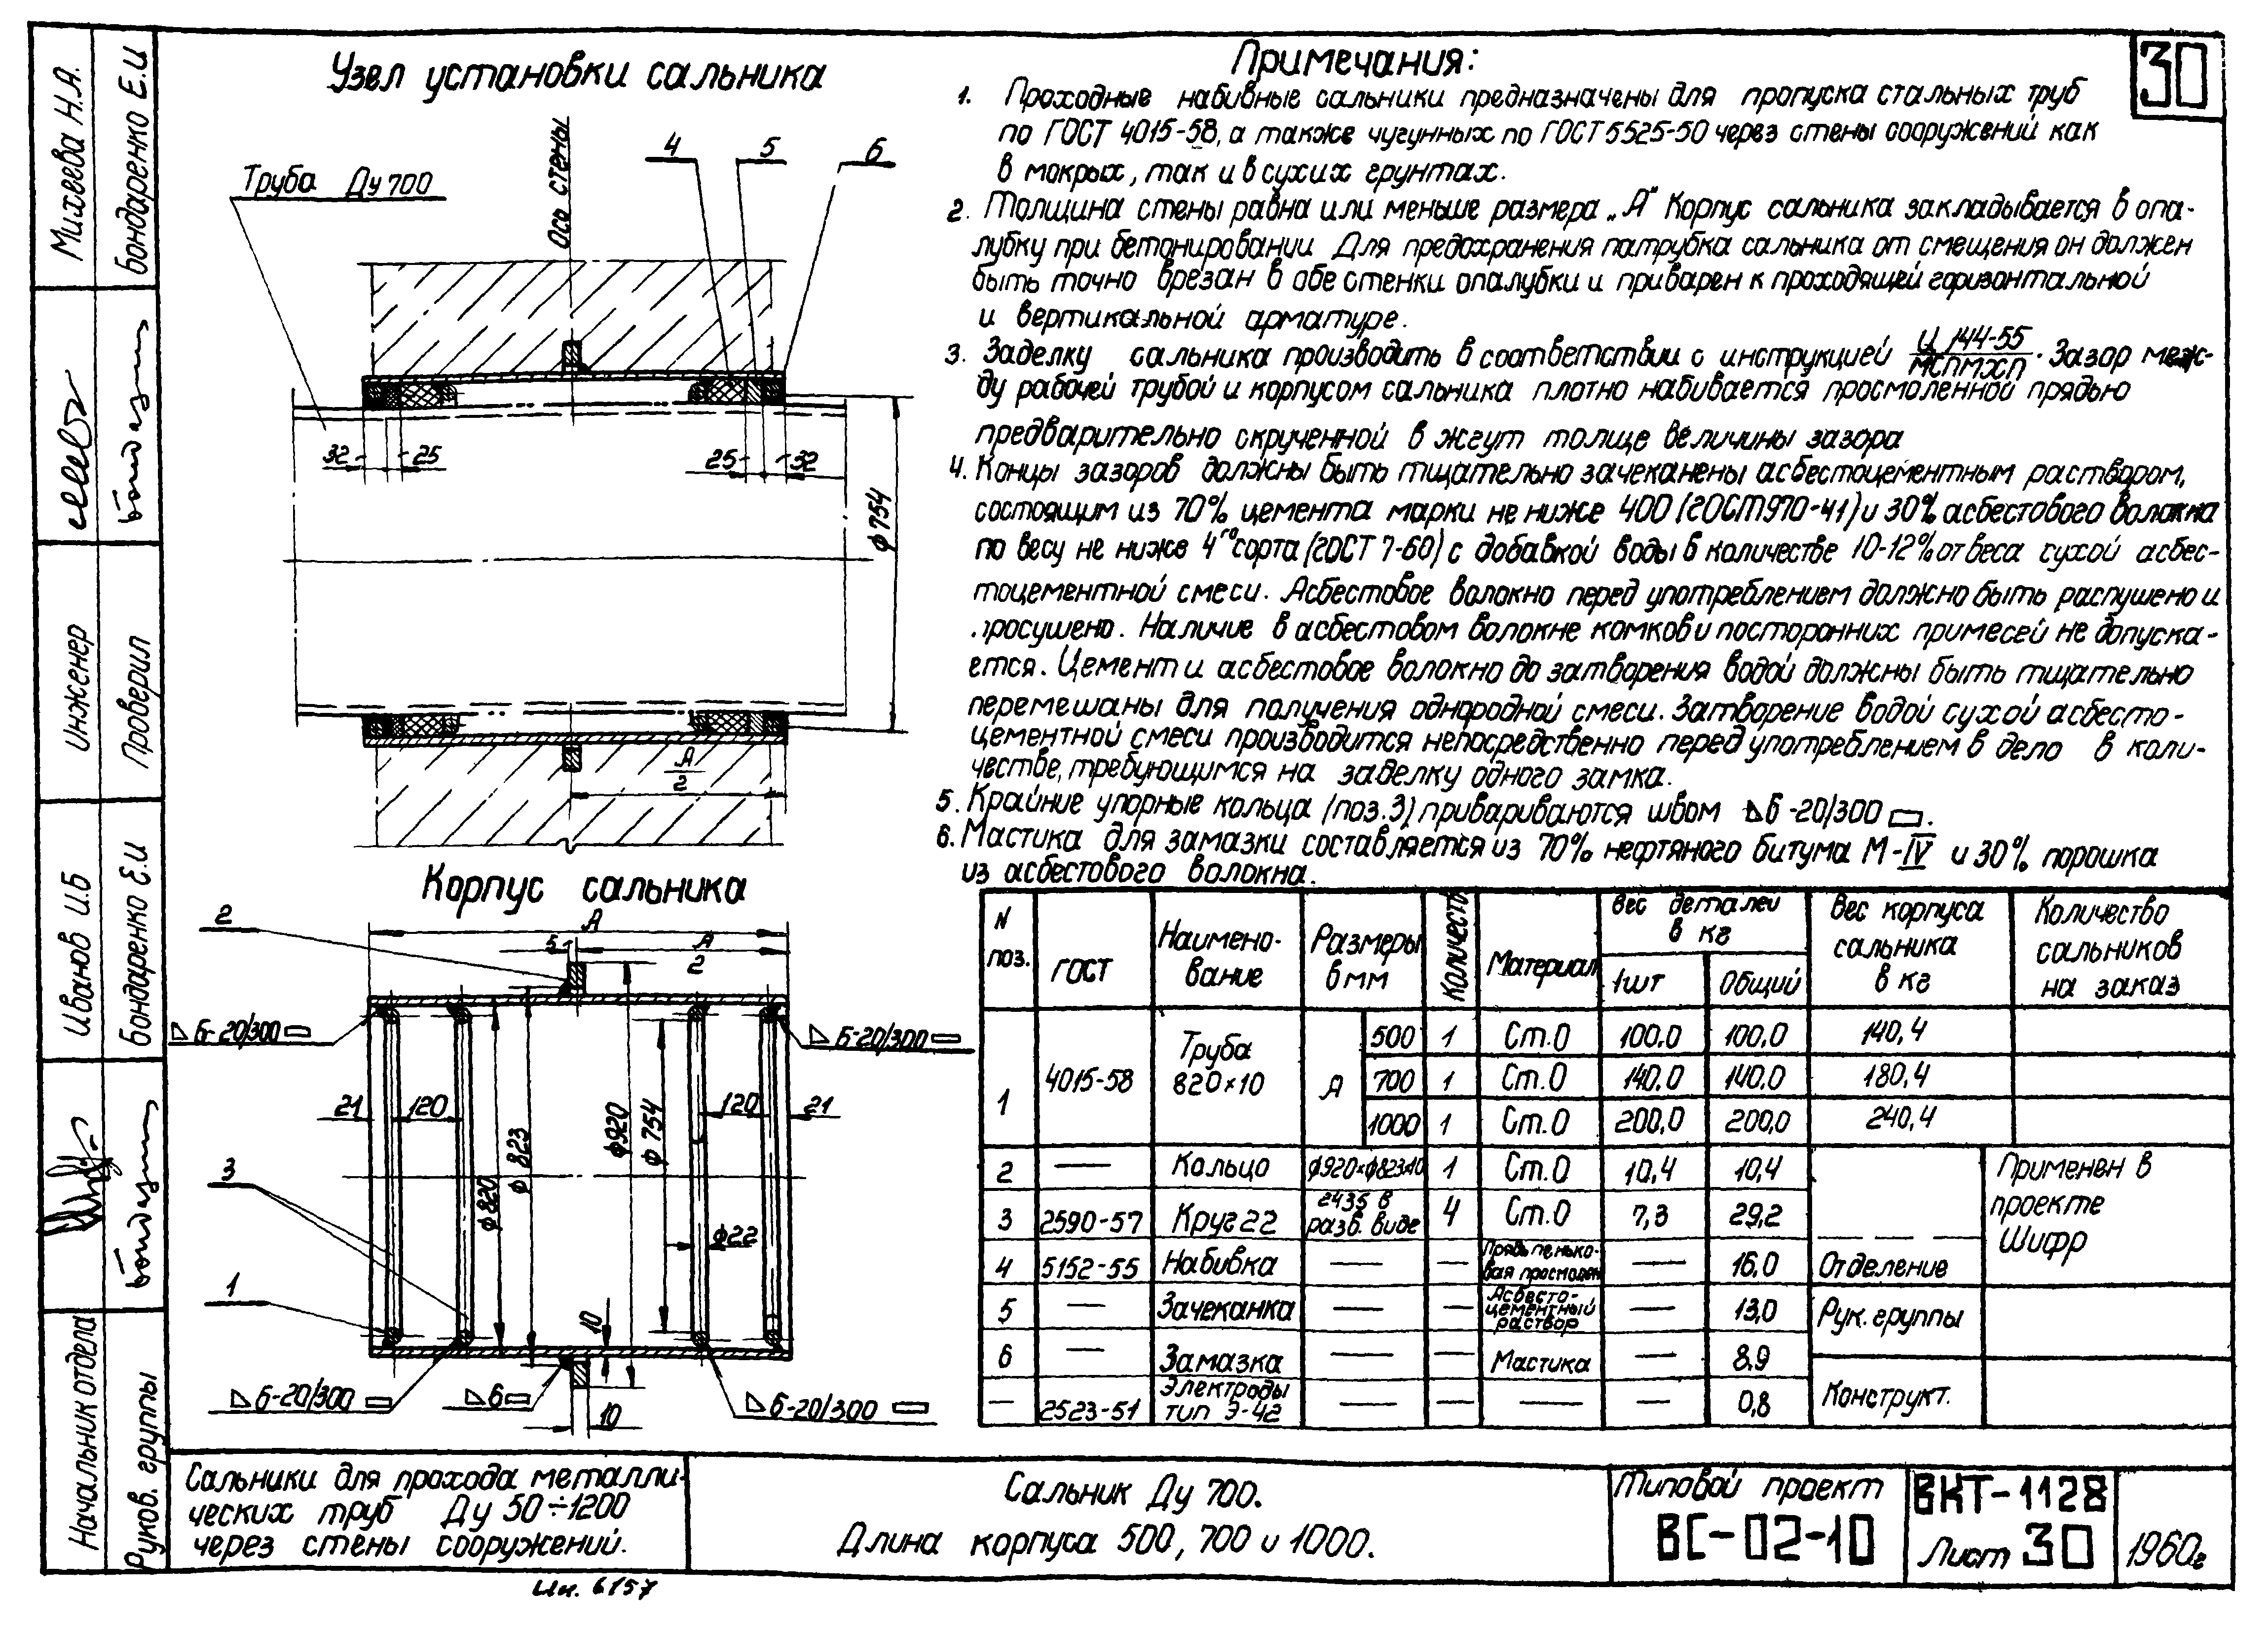 30
Узел установки сальника
Труба Ду 700
Ось стены
4
5
6
32
25
25
32
ф 754
А
2
Корпус сальника
2
А
5
А
2
6-20/300
6-20/300
21
120
120
21
3
ф820
ф 823
ф920
ф 754
ф22
1
10
6-20/300
6
6-20/300
10
Примечания:
1. Проходные набивные сальники предназначены для пропуска стальных труб
по ГОСТ 4015-58, а также чугунных по ГОСТ 5525-50 через стены сооружений как
в мокрых, так и в сухих грунтах.
2. Толщина стены равна или меньше размера „А" Корпус сальника закладывается в опа-
лубку при бетонировании Для предохранения патрубка сальника от смещения он должен
быть точно врезан в обе стенки опалубки и приварен к проходящей горизонтальной
и вертикальной арматуре.
3. Заделку сальника производить в соответствии с инструкцией И 144-55
МСПМХП. Зазор меж-
ду рабочей трубой и корпусом сальника плотно набивается просмоленной прядью
предварительно скрученной в жгут толще величины зазора
4. Концы зазоров должны быть тщательно зачеканены асбестоцементным раствором,
состоящим из 70% цемента марки не ниже 400 (ГОСТ 970-41) и 30% асбестового волокна
по весу не ниже 4го сорта (ГОСТ 7-60) с добавкой воды в количестве 10-12% от веса сухой асбес-
тоцементной смеси. Асбестовое волокно перед употреблением должно быть распушено и
просушено. Наличие в асбестовом волокне комков и посторонних примесей не допуска-
ется. Цемент и асбестовое волокно до затворения водой должны быть тщательно
перемешаны для получения однородной смеси. Затворение водой сухой асбесто-
цементной смеси производится непосредственно перед употреблением в дело в коли-
честве, требующимся на заделку одного замка.
5. Крайние упорные кольца (поз.3) привариваются швом 6-20/300.
6. Мастика для замазки составляется из 70% нефтяного битума М-IV и 30% порошка
из асбестового волокна.
N поз. ГОСТ Наимено-вание Размеры в мм Количеств Материал Вес деталей в кг 1шт Общий Вес корпуса сальника в кг Количество сальников на заказ
1 4015-58 Труба 820×10 А 500 1 Ст.О 100.0 100,0 140,4
700 1 Ст.О 140.0 140.0 180,4
1000 1 Ст.О 200,0 200,0 240,4
2 — Кольцо ф920×ф823×10 1 Ст.О 10,4 10,4
3 2590-57 Круг 22 2435 в разв. виде 4 Ст.О 7,3 29,2
4 5152-55 Набивка — — Прядь пенько-вая просмолен — 16,0
5 — Зачеканка — — Асбесто-цементный раствор — 13,0
6 — Замазка — — Мастика — 8.9
— 2523-51 Электроды тип Э-42 — — — — 0,8
Применен в
проекте
Шифр
Отделение
Рук. группы
Конструкт.
Михеева Н.А.
Бондаренко Е.И
Инженер
Проверил
Иванов И.Б
Бондаренко Е.И
Начальник отдела
Руков. группы
Сальники для прохода металли-
ческих труб Ду 50÷1200
через стены сооружений.
Сальник Ду 700.
Длина корпуса 500, 700 и 1000.
Типовой проект
ВС-02-10
ВКТ-1128
Лист 30
1960г
Ин. 6157